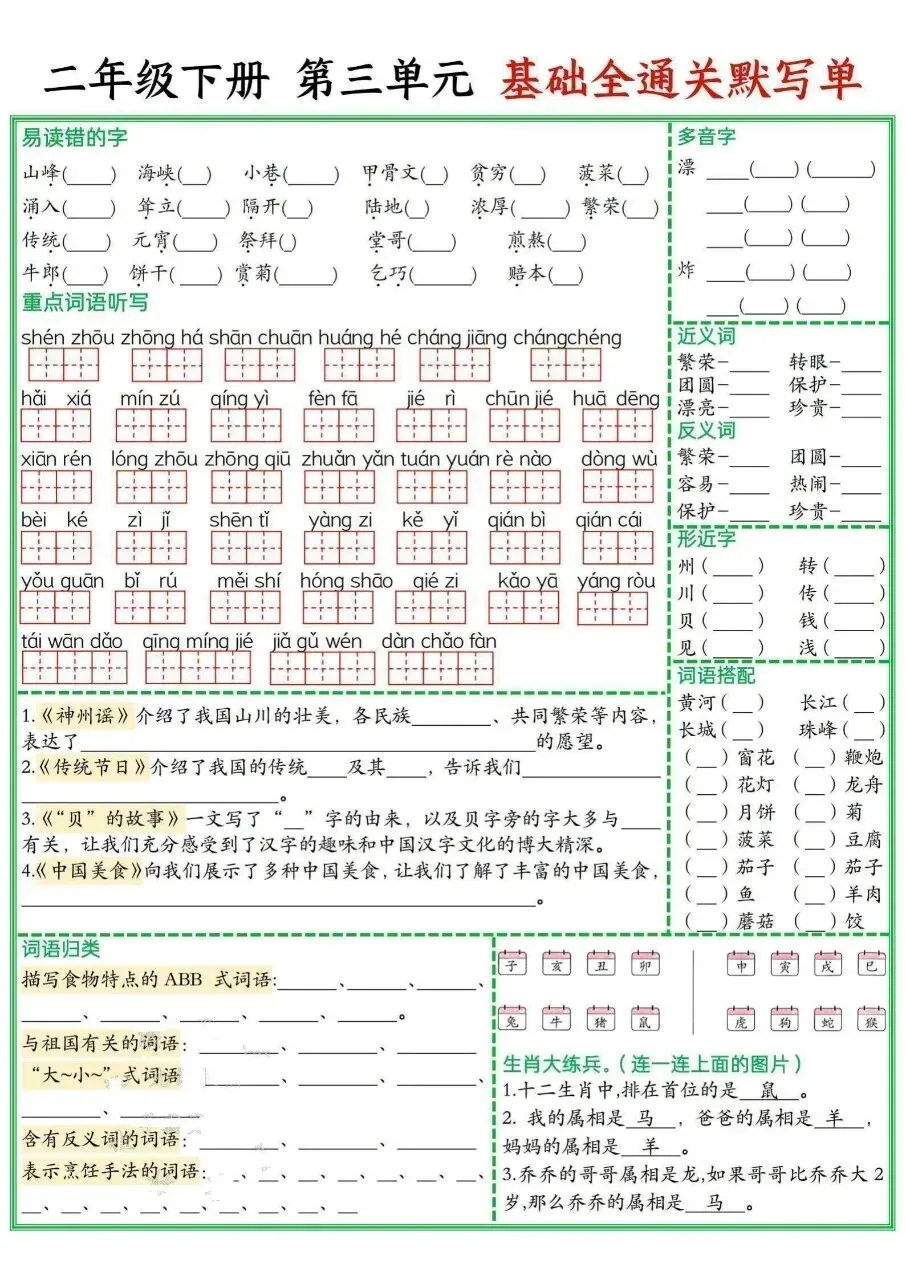 二年级下册 第三单元 基础全通关默写单
易读错的字
山峰(____) 海峡(___) 小巷(_____) 甲骨文(__) 贫穷(___) 菠菜(__)
涌入(_____) 耸立(____) 隔开(__) 陆地(_) 浓厚( _____) 繁荣(___)
传统(____) 元宵(___) 祭拜(_) 堂哥(____) 煎熬(___)
牛郎(____) 饼干( ____) 赏菊(_____) 乞巧(______) 赔本(__)
重点词语听写
shén zhōu zhōng há shān chuān huáng hé cháng jiāng chángchéng
hǎi xiá mín zú qíng yì fèn fā jié rì chūn jié huā dēng
xiān rén lóng zhōu zhōng qiū zhuǎn yǎn tuán yuán rè nào dòng wù
bèi ké zì jǐ shēn tǐ yàng zi kě yǐ qián bì qián cái
yǒu guān bǐ rú měi shí hóng shāo qié zi kǎo yā yáng ròu
tái wān dǎo qīng míng jié jiǎ gǔ wén dàn chǎo fàn
1.《神州谣》介绍了我国山川的壮美，各民族________、共同繁荣等内容，
表达了______________________________的愿望。
2.《传统节日》介绍了我国的传统____及其____，告诉我们__________
__________________。
3.《“贝”的故事》一文写了“__”字的由来，以及贝字旁的字大多与____
有关，让我们充分感受到了汉字的趣味和中国汉字文化的博大精深。
4.《中国美食》向我们展示了多种中国美食，让我们了解了丰富的中国美食，
__________________________________。
多音字
漂 ____(____) (______)
____(____) (____)
____(____) (____)
炸 ____(____) (____)
____(____) (____)
近义词
繁荣-____ 转眼-____
团圆-____ 保护-____
漂亮-____ 珍贵-____
反义词
繁荣-____ 团圆-____
容易-____ 热闹-____
保护-____ 珍贵-____
形近字
州(____) 转(____)
川(____) 传(____)
贝(____) 钱(____)
见(____) 浅(____)
词语搭配
黄河(__) 长江(__)
长城(__) 珠峰(__)
(__)窗花 (__)鞭炮
(__)花灯 (__)龙舟
(__)月饼 (__)菊
(__)菠菜 (__)豆腐
(__)茄子 (__)茄子
(__)鱼 (__)羊肉
(__)蘑菇 (__)饺
词语归类
描写食物特点的ABB 式词语:_____、_____、_____、
_____、_____、_____、_____、_____。
与祖国有关的词语：______、______、______
“大~小~”式词语 ______、______、______
______、______
含有反义词的词语：______、______、______
表示烹饪手法的词语：__、__、__、__、__、__、
__、__、__、__、__、__、__
子 亥 丑 卯 申 寅 戌 巳
兔 牛 猪 鼠 虎 狗 蛇 猴
生肖大练兵。（连一连上面的图片）
1.十二生肖中,排在首位的是__鼠__。
2. 我的属相是__马__，爸爸的属相是__羊__，
妈妈的属相是__羊__。
3.乔乔的哥哥属相是龙,如果哥哥比乔乔大2
岁,那么乔乔的属相是__马__。